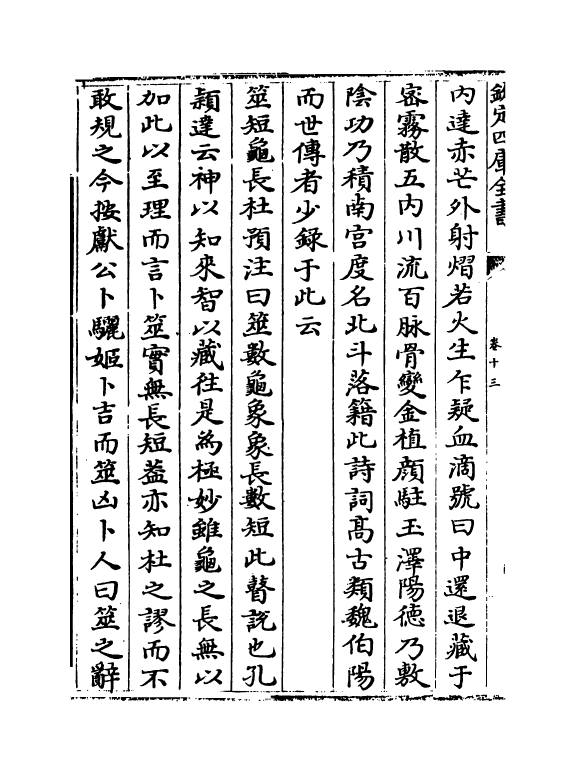 欽定四庫全書
卷十三
內達赤芒外射熠若火生乍疑血滴號曰中還退藏于
密霧散五內川流百脉骨變金植顔駐玉澤陽德乃敷
陰功乃積南宫度名北斗落籍此詩詞髙古類魏伯陽
而世傳者少録于此云
筮短龜長杜預注曰筮數龜象象長數短此瞽說也孔
穎達云神以知來智以藏往是為極妙雖龜之長無以
加此以至理而言卜筮實無長短葢亦知杜之謬而不
敢規之今按獻公卜驪姬卜吉而筮凶卜人曰筮之辭